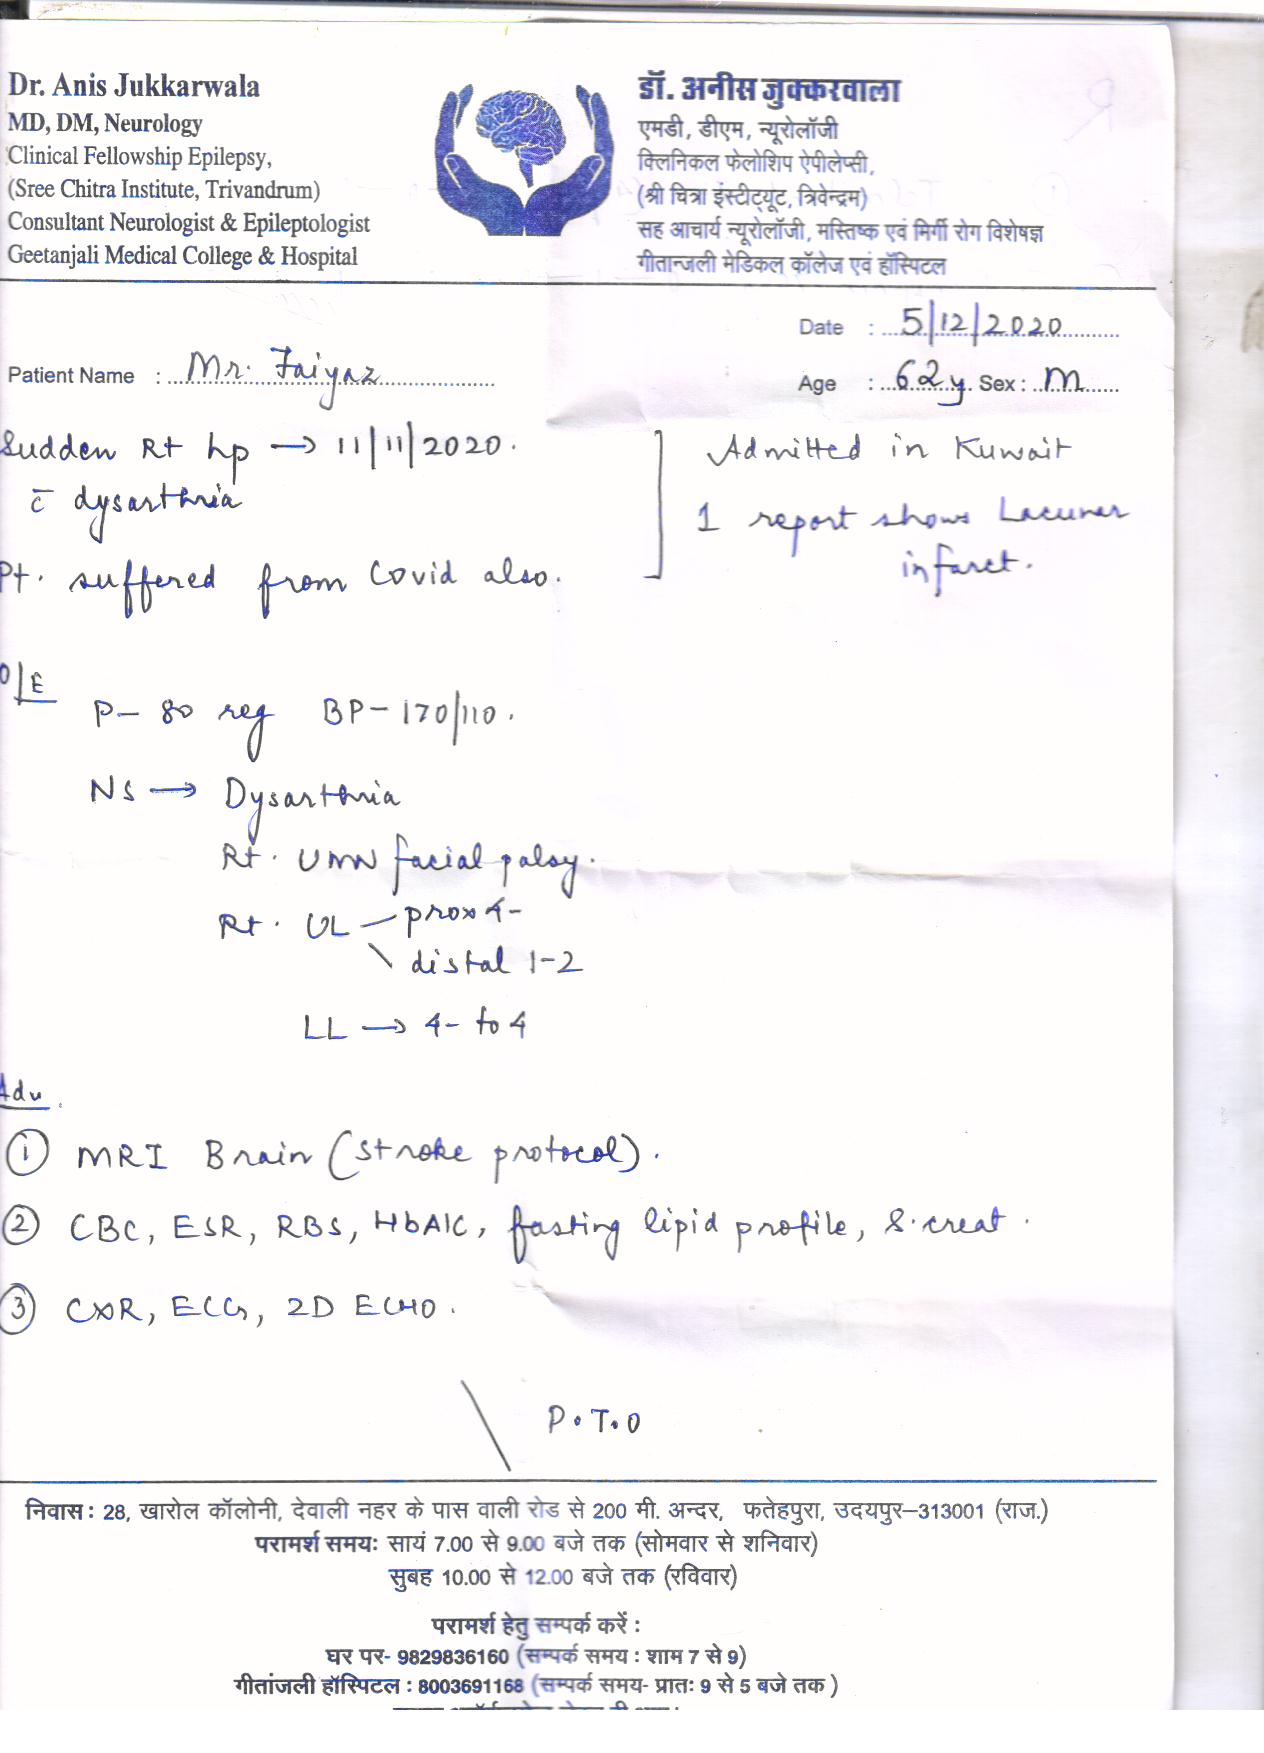 Dr. Anis Jukkarwala
MD, DM, Neurology
Clinical Fellowship Epilepsy,
(Sree Chitra Institute, Trivandrum)
Consultant Neurologist & Epileptologist
Geetanjali Medical College & Hospital
डॉ. अनीस जुक्करवाला
एमडी, डीएम, न्यूरोलॉजी
क्लिनिकल फेलोशिप ऐपीलेप्सी,
(श्री चित्रा इंस्टीट्यूट, त्रिवेन्द्रम)
सह आचार्य न्यूरोलॉजी, मस्तिष्क एवं मिर्गी रोग विशेषज्ञ
गीतान्जली मेडिकल कॉलेज एवं हॉस्पिटल
Date : 5/12/2020
Patient Name : Mr. Faiyaz
Age : 62y Sex : M
Sudden Rt hp → 11/11/2020.
c̄ dysarthria
Pt. suffered from Covid also.
Admitted in Kuwait
1 report shows Lacunar
infarct.
O/E
P- 80 reg BP- 170/110.
NS → Dysarthria
Rt. UMN facial palsy.
Rt. UL - prox 4-
\ distal 1-2
LL → 4- to 4
Adv.
① MRI Brain (stroke protocol).
② CBC, ESR, RBS, HbA1C, fasting lipid profile, S. creat.
③ CXR, ECG, 2D ECHO.
P.T.O
निवास : 28, खारोल कॉलोनी, देवाली नहर के पास वाली रोड से 200 मी. अन्दर, फतेहपुरा, उदयपुर–313001 (राज.)
परामर्श समयः सायं 7.00 से 9.00 बजे तक (सोमवार से शनिवार)
सुबह 10.00 से 12.00 बजे तक (रविवार)
परामर्श हेतु सम्पर्क करें :
घर पर- 9829836160 (सम्पर्क समय : शाम 7 से 9)
गीतांजली हॉस्पिटल : 8003691168 (सम्पर्क समय- प्रातः 9 से 5 बजे तक )